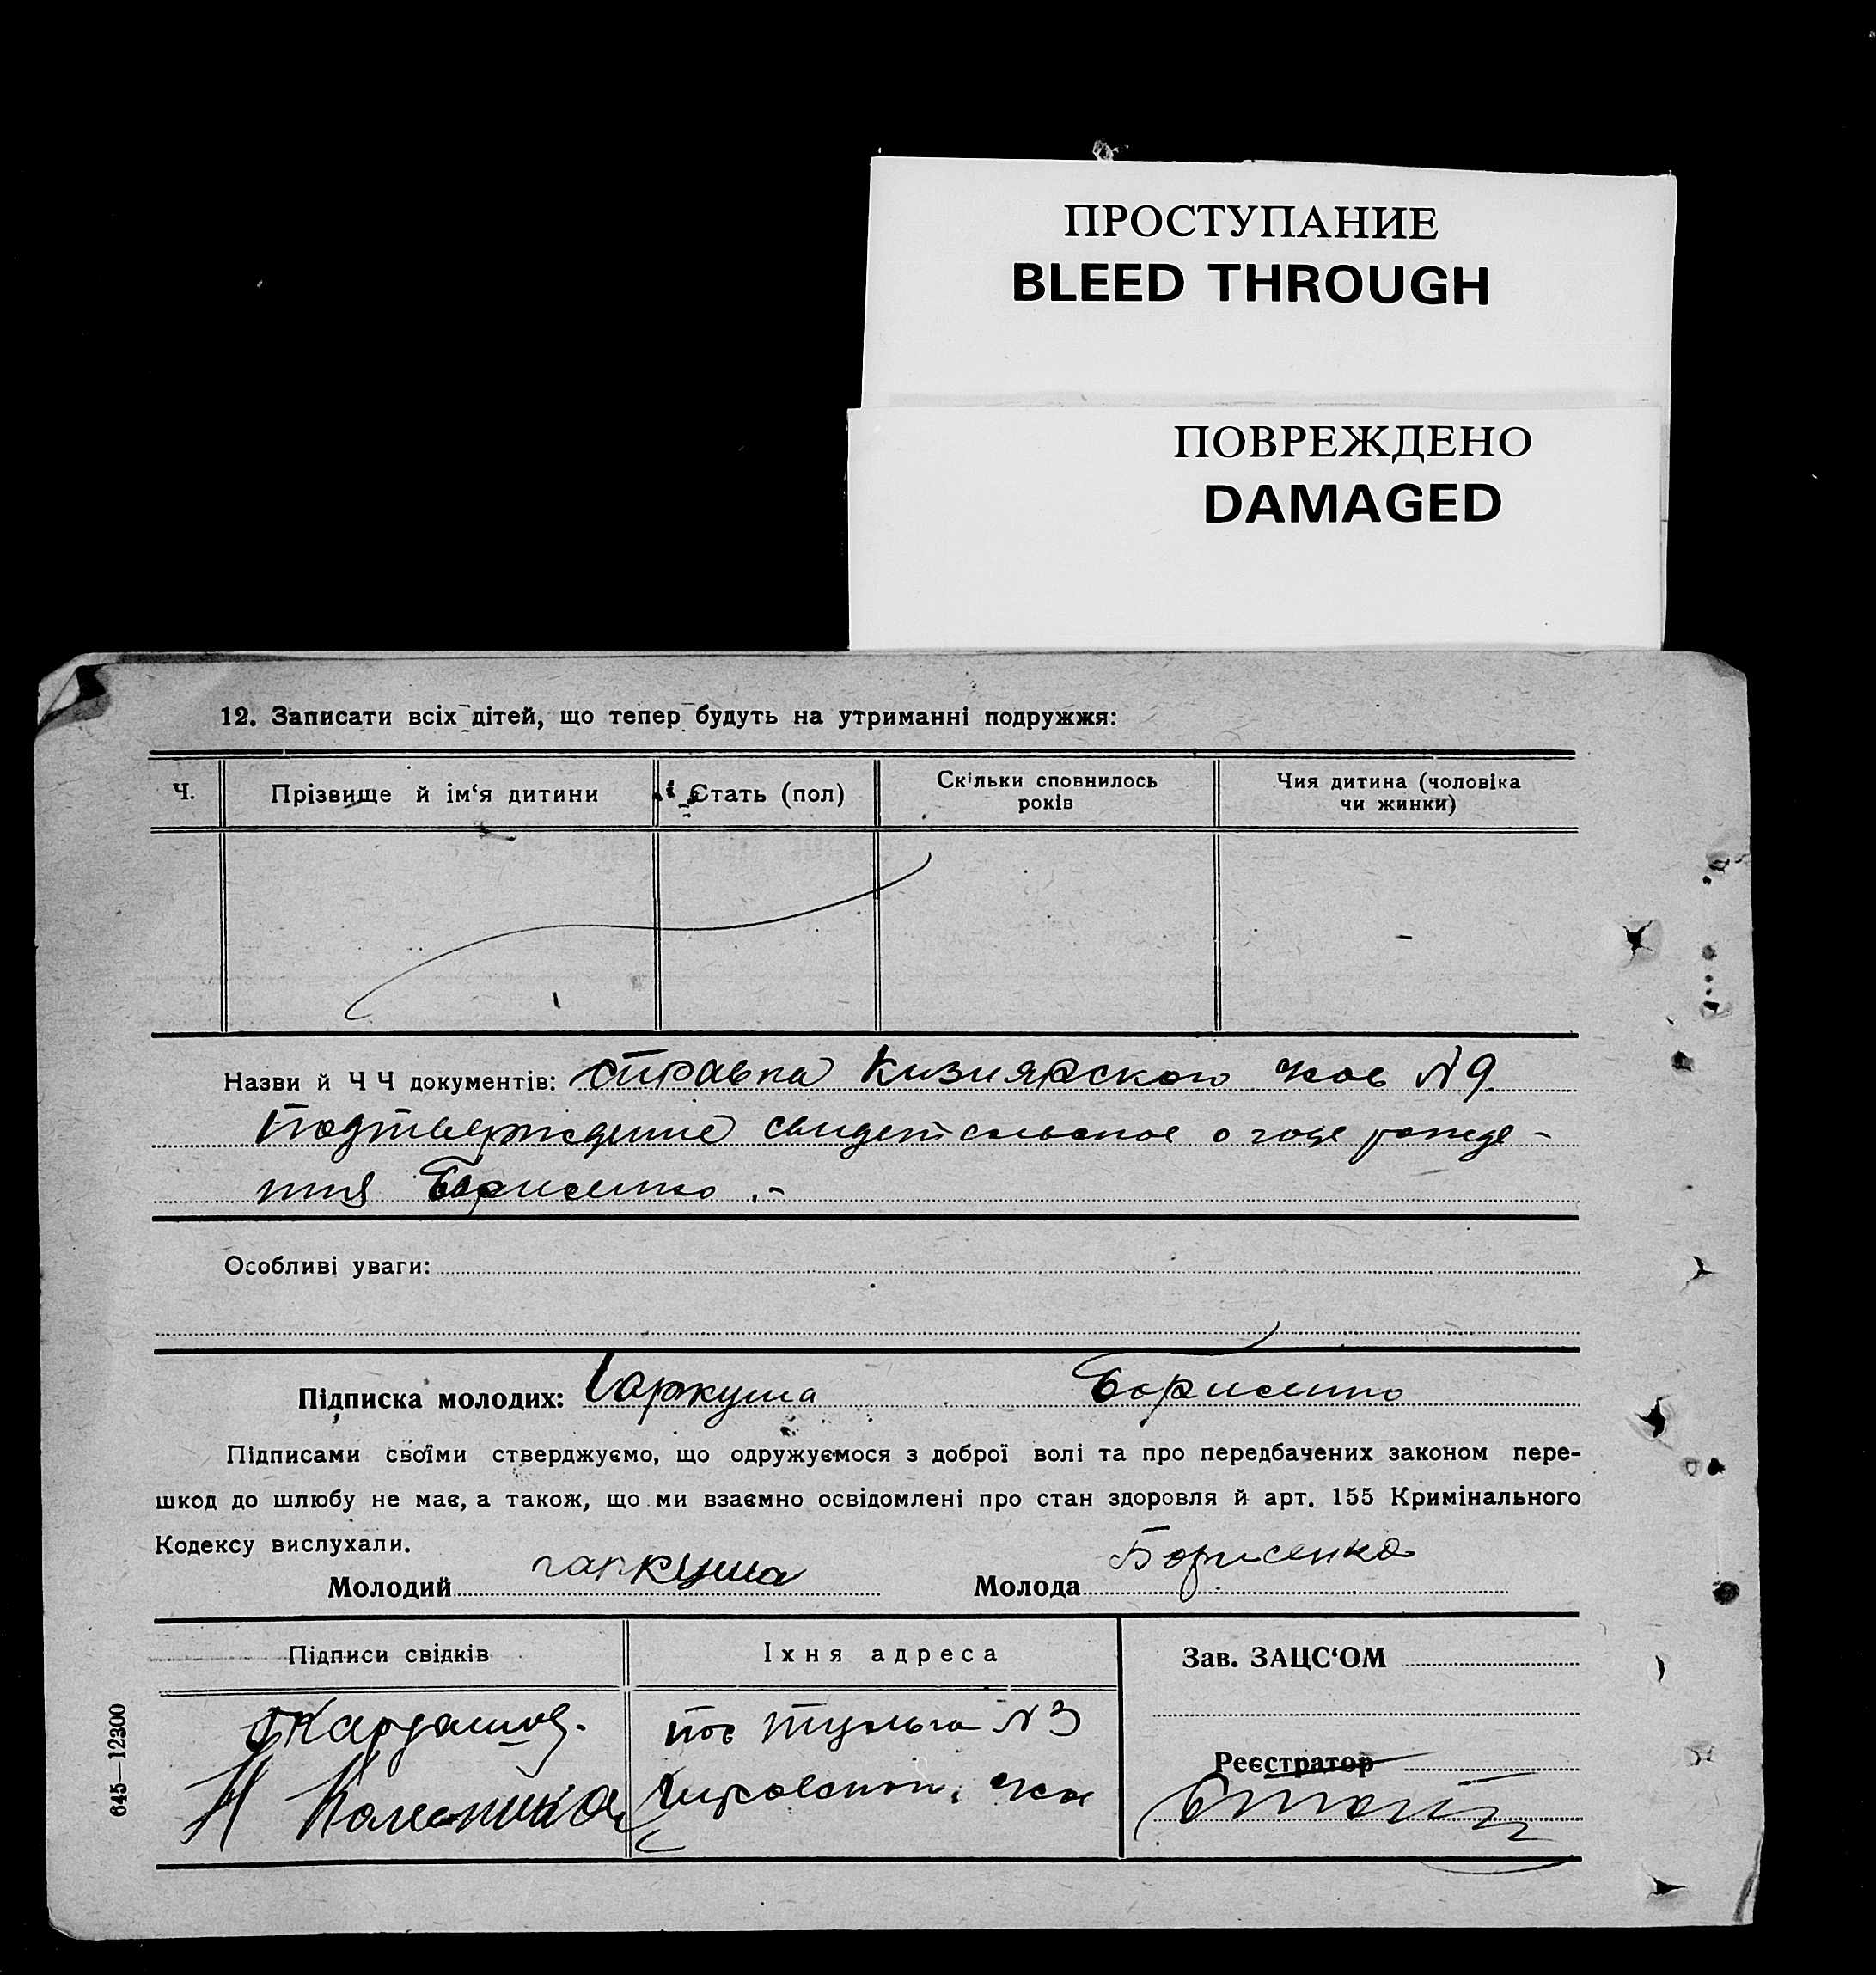 ПРОСТУПАНИЕ
BLEED THROUGH
ПОВРЕЖДЕНО
DAMAGED
12. Записати всіх дітей, що тепер будуть на утриманні подружжя:
Ч.
Прізвище й ім‘я дитини
Стать (пол)
Скільки сповнилось
років
Чия дитина (чоловіка
чи жинки)
Назви й Ч Ч документів: справка Кизиярского N 9
Подтверждение о годе рожде-
ния Борисенко .-
Особливі уваги:
Підписка молодих: Гаркуша Борисенко
Підписами своїми стверджуємо, що одружуємося з доброї волі та про передбачених законом пере-
шкод до шлюбу не має, а також, що ми взаємно освідомлені про стан здоровля й арт. 155 Кримінального
Кодексу вислухали.
Молодий гаркуша Молода Борисенко
Підписи свідків
Іхня адреса
Зав. ЗАЦС‘ОМ
N 3
Реєстратор
645—12300